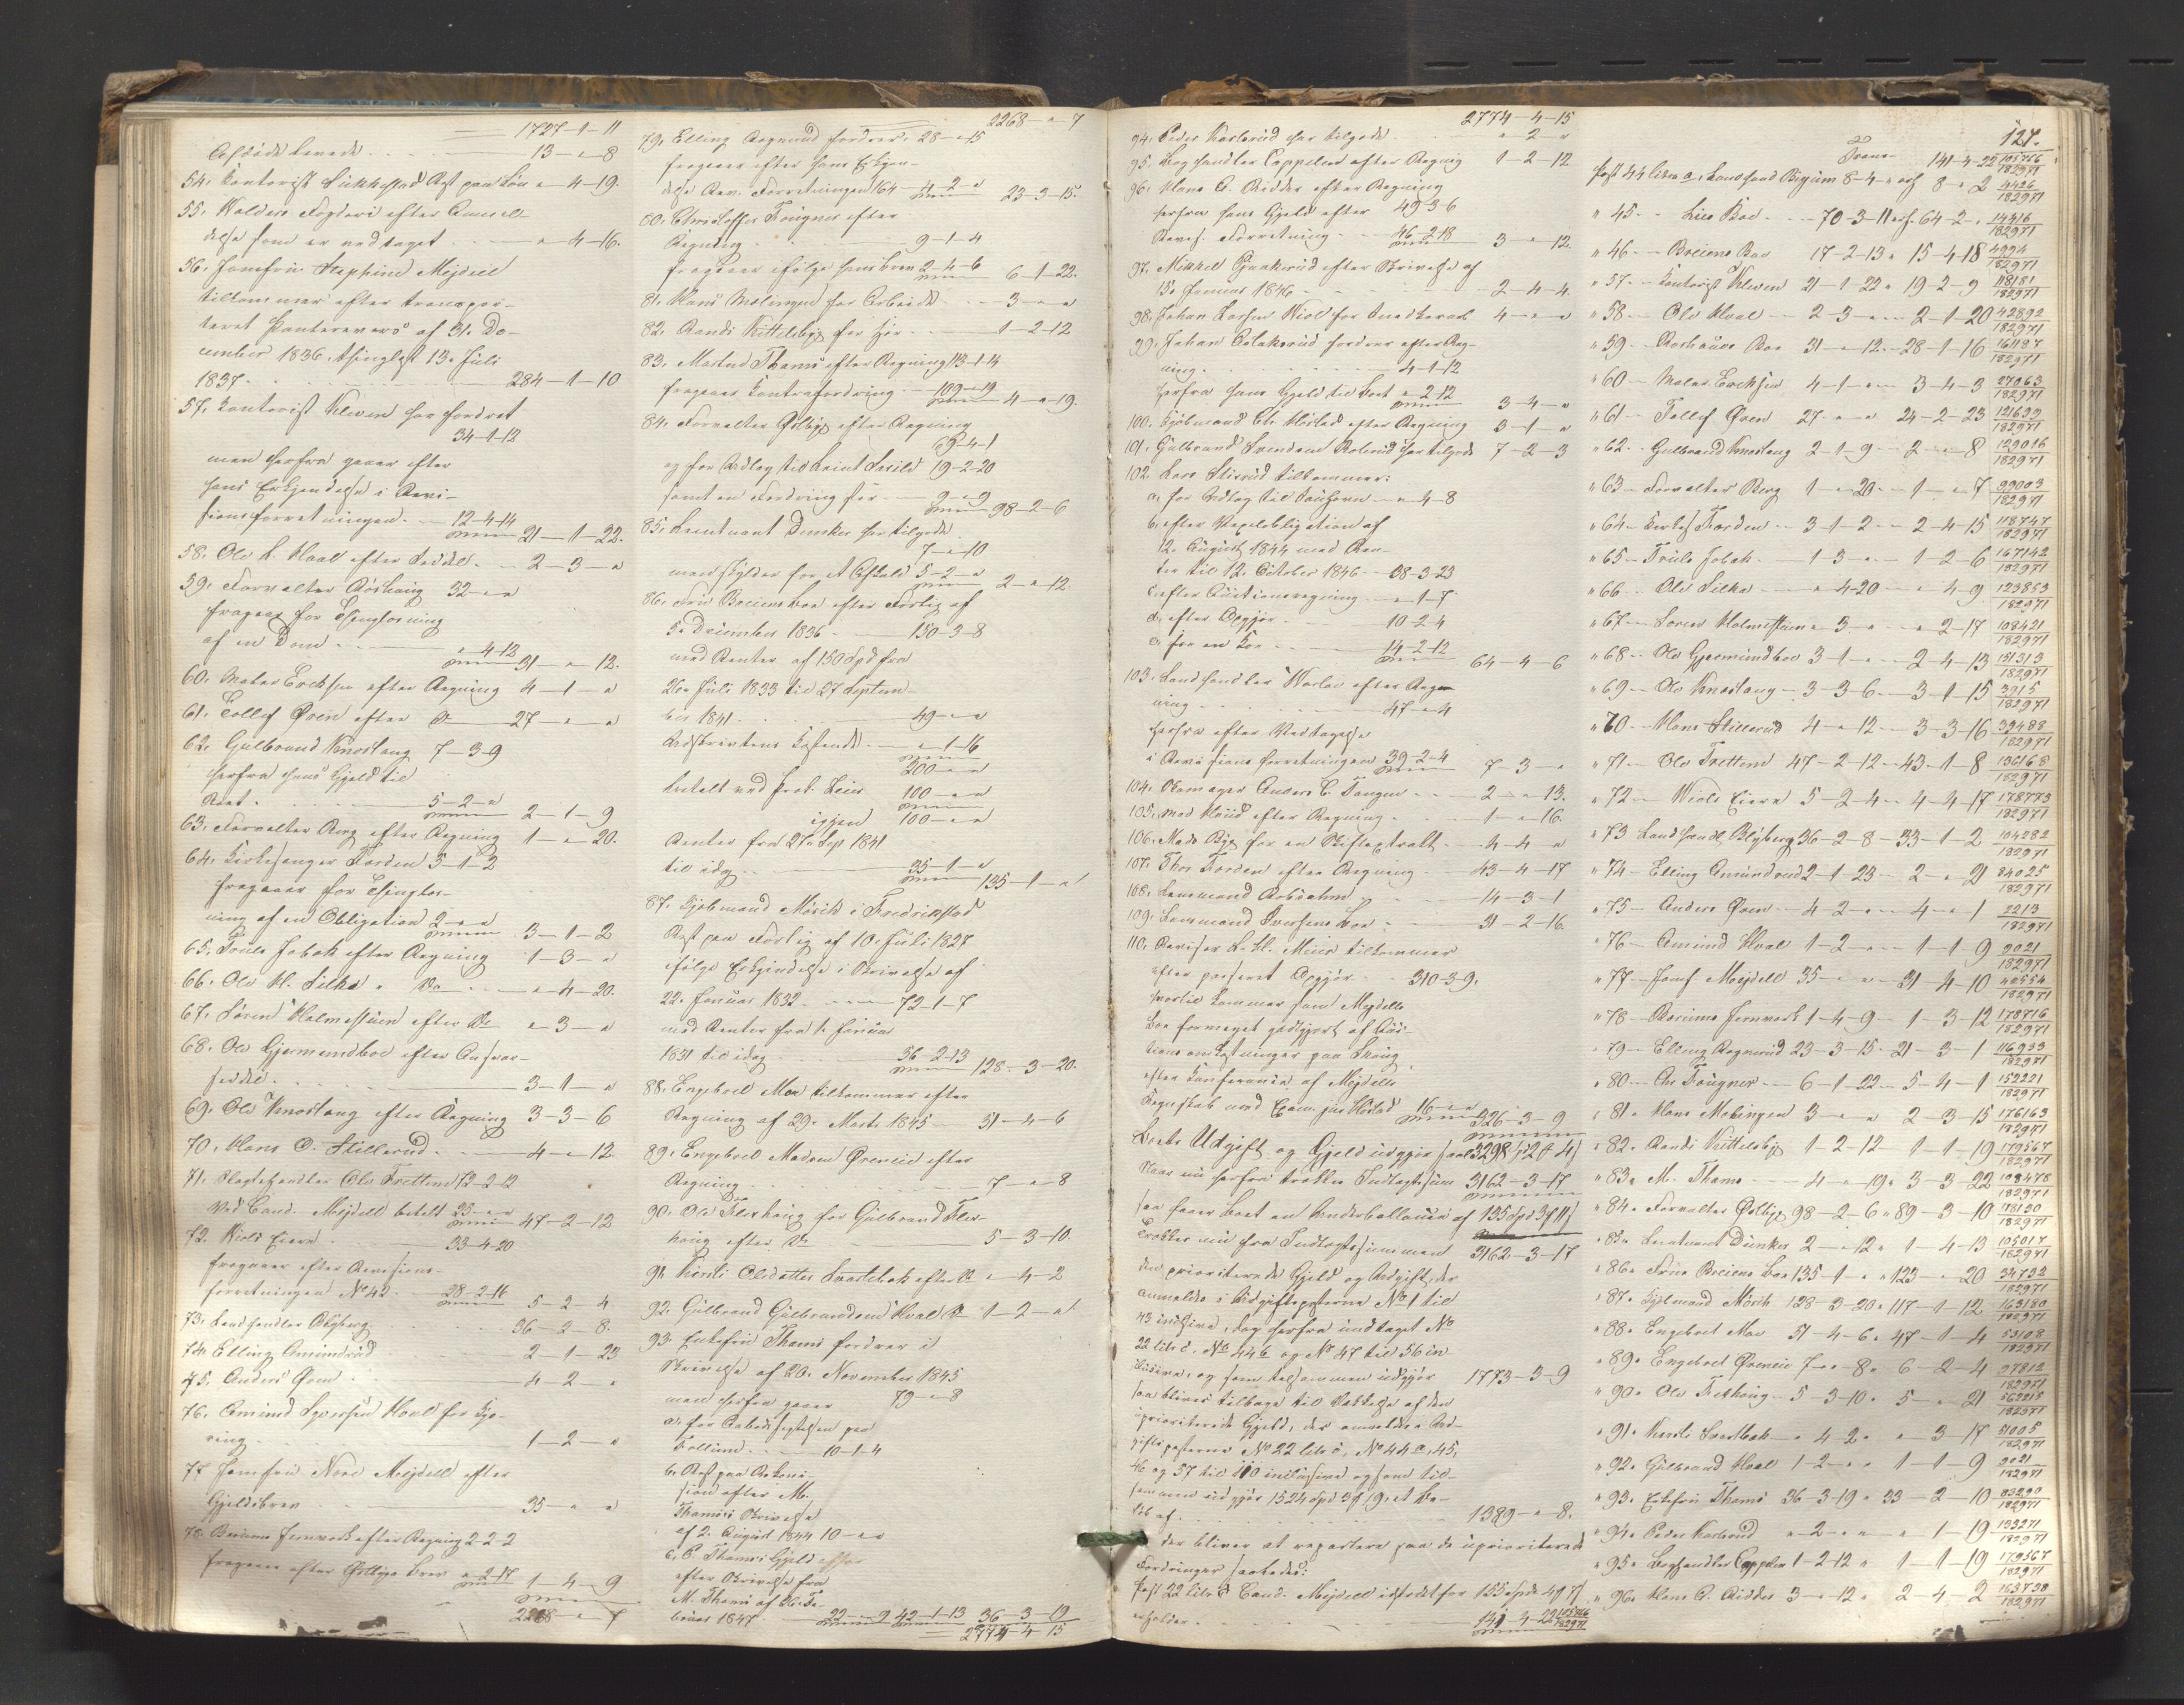 1727-1-11
Afdøde Enkede 13-"-8
54, Kontorist Lukkestad Rest paa Løn "-4-19.
55, Valders Fogderi efter Anmel-
delse som er vedtaget "-4-16.
56, Jomfru Stephine Mejdell
tilkommer efter transpor-
teret Panterevers af 31. De-
cember 1836, thinglæst 13. Juli
1837 284-1-10
57, Kontorist Kleven har fordret
34-1-12
men herfra gaaer efter
hans Erkjendelse i Revi-
sionsforretningen 12-4-14 21-1-22.
58, Ole L. Hval efter Seddel 2-3-"
59, Forvalter Röshaug 32-"-"
fragaaer for Thinglæsning
af en Dom "-4-12 31-"-12.
60, Maler Ericksen efter Regning 4-1-"
61, Tollef Øren efter Do 27-"-"
62, Gulbrand Knostang 7-3-9
herfra hans Gjeld til
Boet 5-2-" 2-1-9
63, Forvalter Berg efter Regning 1-"-20.
64, Kirkesanger Forden 5-1-2
fragaaer for Thinglæs-
ning af en Obligation 2-"-" 3-1-2
65, Truls Jobak efter Regning 1-3-"
66, Ole H. Silke " Do "-4-20.
67, Søren Holmestuen efter Do "-3-"
68, Ole Gjermundboe efter Ansvar-
seddel 3-1-"
69, Ole Knostang efter Regning 3-3-6
70, Hans O. Stillerud 4-"-12
71, Ole Trettem 72-2-12
Ved Cand. Mejdell betalt 25-"-" 47-2-12
72, Niels Eiern 33-4-20
fragaaer efter Revisions-
forretningen No 42 28-2-16 5-2-4
73, Landhandler Blyberg 36-2-8.
74, Elling Amundrud 2-1-23
75, Anders Øren 4-2-"
76, Amund Syversen Hval for Kjø-
ring 1-2-"
77, Jomfru Mejdell efter
Gjeldsbrev 35-"-"
78, Bærums Jernverk efter Regning 2-2-2
fragaaer efter Østbyes Brev "-2-17 1-4-9
2268-"-7
2268-"-7
79, Elling Rognerud fordrer 28-"-15
fragaaer efter hans Erkjen-
delse Rev. Forretningen 64 4-2-" 23-3-15.
80, Christoffer Fougner efter
Regning 9-1-4
fragaaer ifølge hans brev 2-4-6 6-1-22.
81, Hans Mælingen for Arbeide 3-"-"
82, Randi Kittelsby for Hør 1-2-12
83, Thams efter Regning 113-1-14
fragaaer Kontrafordring 109-"-19 4-"-19.
84, Forvalter Østbye efter Regning
69-4-1
og for Udlæg til Leint 19-2-20
samt en Fordring for 9-"-9 98-2-6
85, Leutnant Dunker har tilgode
7-"-10
men skylder for et Afhold 5-2-" 2-"-12.
86, Fru Breiens Boe efter Forlig af
5. December 1836 150-3-8
med Renter af 150 Spd fra
26. Juli 1833 til 27 Septem-
ber 1841 49-"-"
Udskriftens Kostende "-1-16
200-"-"
betalt ved Prok. Leus 100-"-"
igjen 100-"-"
Renter fra 27. Sep. 1841
til idag 35-1-" 135-1-"
87, Kjøbmand Mørch i Fredrikstad
Rest paa Forlig af 10. Juli 1827
ifølge Erkjendelse i Skrivelse af
22. Januar 1832 72-1-7
med Renter fra 1. Januar
1831 til idag 56-2-13 128-3-20.
88, Engebret Moe tilkommer efter
Regning af 29. Marts 1845 51-4-6
89, Engebret Madsen Øreneie efter
Regning 7-"-8
90, Ole Fleskoug for Gulbrand Fles-
houg efter Do 5-3-10.
91, Kirsti Olsdatter Svartbak efter Do "-4-2
92, Gulbrand Gulbrandsen Hval Do 1-2-"
93, Enkefru Thams fordrer i
Skrivelse af 20. November 1845
men herfra gaaer 79-"-8
a, for Arbeidshjelpen paa
Follum 10-1-4
b, Rest paa Rekvi-
sion efter M.
Thams's Skrivelse
af 2. August 1844 10-"-"
c, P. Thams's Gjeld efter
efter Skrivelse fra
M. Thams af 26. Fe-
bruar 1847 22-"-9 42-1-13 36-3-19
2774-4-15
2774-4-15
94, Peder Karlsrud har tilgode "-2-"
95, Boghandler Cappelen efter Regning 1-2-12
96, Hans A. Ridder efter Regning
herfra hans Gjeld efter 49-3-6
Reves. Forretning 46-2-18 3-"-12.
97, Mikkel Gjaakerud efter Skrivelse af
15. Januar 1846 2-4-4.
98, Johan Larsen Viel for Snedkerarb. 4-"-"
99, Johan Aslaksrud fordrer efter Reg-
ning 4-1-12
herfra hans Gjeld til Boet "-2-12 3-4-"
100, Kjøbmand Chr. Hörstad efter Regning 3-1-"
101, Gulbrand Svendsen Rolerud har tilgode 7-2-3
102, Lars Stixrud tilkommer:
a, for Udlæg til "-4-8
b, efter Vexelobligation af
12. August 1844 med Ren-
ter til 12. October 1846 38-3-23
c, efter Auctionsregning "-1-7
d, efter Opgjør 10-2-4
e, for en Koe 14-2-12 64-4-6
103, Landhandler Warloe efter Reg-
ning 47-"-4
herfra efter Vedtagelse
i Revisionsforretningen 39-2-4 7-3-"
104, Anders C. Tangen 2-"-13.
105, Mos Haud efter Regning 1-"-16.
106, Mads Bye for en Skiftextrakt 4-4-"
107, Thor Forden efter Regning 43-4-17
108, Lensmand 14-3-1
109, Lensmand Svensens Boe 31-2-16.
110, Revisor L. H. Meier tilkommer
efter passeret Opgjør 310-3-9.
hvortil kommer som Mejdells
Boe formeget godtgjort af Auc-
tionsomkostninger paa Skoug
efter Konference af Mejdells
Regnskab med Exam. jur. Hörstad 16-"-" 326-3-9
Boets Udgift og Gjeld udgjør saal. 3298 ß 2 4
Naar nu herfra trækkes Indtægtssum 3162-3-17
saa faaer Boet en Underballance af 135 Spd 3 11 ß
Trækkes nu fra Indtægtssummen 3162-3-17
den prioriterede Gjeld og Udgift, der
anmeldes i Udgiftsposterne No 1 til
43 inclusive, dog herfra undtaget No
22 litr c, No 44 b og No 47 til 56 in-
clusive, og som tilsammen udgjør 1773-3-9
saa bliver tilbage til Dækkelse af den
uprioriterede Gjeld, der anmeldes i Ud-
giftsposterne No 22 litr c, No 44 a, 45,
46 og 57 til 110 inclusive og som til-
sammen udgjør 1524 Spd 3 9, et Be-
løb af 1389-"-8.
der bliver at repartere paa de uprioriterede
Fordringer saaledes:
Post 22 litr c Cand. Mejdell istedetfor 155 Spd 4 7 ß
erholder 141-4-22 105746/182971
127.
Trans- 141-4-22 105746/182971
Post 44 litra a, Landhand Bigum 8-4-" erh. 8-"-2 4426/182971
" 45 - Lies Boe 70-3-11 erh. 64-2-" 14416/182971
" 46 - Breiens Boe 17-2-13 " 15-4-18 4994/182971
" 57 - Kontorist Kleven 21-1-22 " 19-2-9 118181/182971
" 58 - Ole Hval 2-3-" 2-1-20 42892/182971
" 59 - Røshaugs Boe 31-"-12 28-1-16 161187/182971
" 60 - Maler Ericksen 4-1-" 3-4-3 27063/182971
" 61 - Tollef Øren 27-"-" 24-2-23 121699/182971
" 62 - Gulbrand Knostang 2-1-9 2-"-8 129016/182971
" 63 - Forvalter Berg 1-"-20 1-"-7 99003/182971
" 64 - Kirkes. Forden 3-1-2 2-4-15 118747/182971
" 65 - Truls Jobak 1-3-" 1-2-6 167142/182971
" 66 - Ole Silke "-4-20 "-4-9 123853/182971
" 67 - Søren Holmestuen "-3-" "-2-17 108421/182971
" 68 - Ole Gjermundboe 3-1-" 2-4-13 151313/182971
" 69 - Ole Knostang 3-3-6 3-1-15 3915/182971
" 70 - Hans Stillerud 4-"-12 3-3-16 39488/182971
" 71 - Ole Trettem 47-2-12 43-1-8 136168/182971
" 72 - Niels Eiern 5-2-4 4-4-17 178773/182971
" 73 Landhandl. Blyberg 36-2-8 33-1-2 104282/182971
" 74 - Elling Amundrud 2-1-23 2-"-21 84025/182971
" 75 - Anders Øren 4-2-" 4-"-1 2213/182971
" 76 - Amund Hval 1-2-" 1-1-9 9021/182971
" 77 - Jomf. Mejdell 35-"-" 31-4-10 42554/182971
" 78 - Bærums Jernverk 1-4-9 1-3-12 178716/182971
" 79 - Elling Rognerud 23-3-15 21-3-1 116933/182971
" 80 - Chr Fougner 6-1-22 5-4-1 152221/182971
" 81 " Hans Mælingen 3-"-" 2-3-15 176163/182971
" 82. Randi Kittelsby 1-2-12 1-1-19 179567/182971
" 83 " M. Thams 4-"-19 " 3-3-22 108478/182971
" 84 " Forvalter Østbye 98-2-6 " 89-3-10 78130/182971
" 85 " Leutenant Dunker 2-"-12 " 1-4-13 105017/182971
" 86 " Frue Breiens Boe 135-1-" " 123-"-20 34732/182971
" 87 " Kjøbmand Mørch 128-3-20 " 117-1-12 163180/182971
" 88 " Engebret Moe 51-4-6 " 47-1-4 53108/182971
" 89 " Engebret Øreneie 7-"-8 " 6-2-4 97812/182971
" 90 " Ole Fleskoug 5-3-10 " 5-"-21 56215/182971
" 91 " Kirsti Svartbak "-4-2 " "-3-17 51005/182971
" 92 " Gulbrand Hval 1-2-" " 1-1-9 9021/182971
" 93 " Enkefru Thams 36-3-19 " 33-2-10 83290/182971
" 94 " Peder Karlsrud "-2-" " "-1-19 133271/182971
" 95 " Boghandler Cappelen 1-2-12 " 1-1-19 179567/182971
" 96 " Hans A. Ridder 3-"-12 " 2-4-2 163738/182971